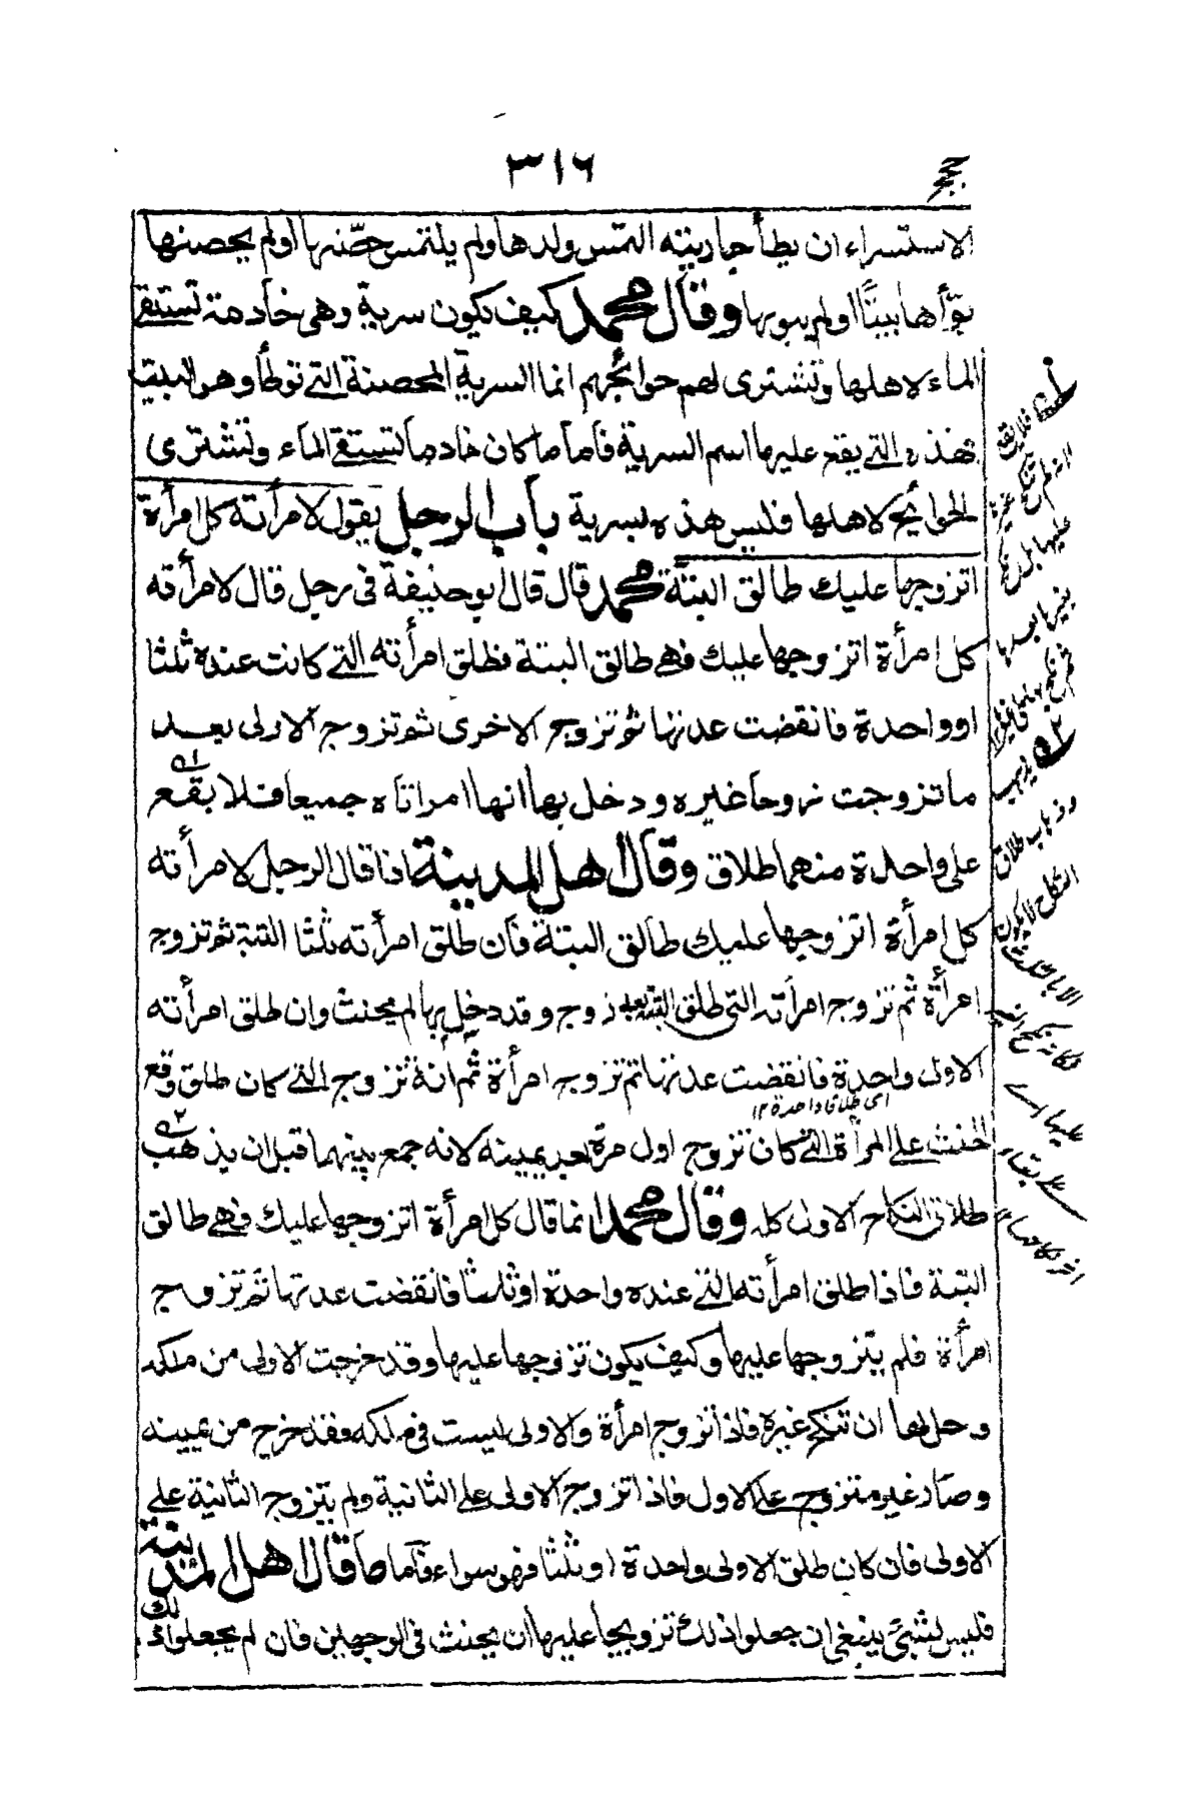 ٣١٦
الاستسراء ان يطأ جاريته التمس ولدها ولم يلتمس حصّنها او لم يحصنها
بوّأها بيتًا او لم يبوئها وقال محمد كيف تكون سرية وهى خادمة تستقى
الماء لاهلها وتشترى لهم حوائجهم انما السرية المحصنة التى توطأ وهو البيت
فهذه التى يقع عليها اسم السرية فأما ما كان خادما لتستقى الماء وتشترى
الحوائج لاهلها فليس هذه بسرية باب الرجل يقول لامرأته كل امرأة
اتزوجها عليك طالق البتة محمد قال قال ابو حنيفة فى رجل قال لامرأته
كل امرأة اتزوجها عليك فهى طالق البتة فطلق امرأته التى كانت عنده ثلثا
او واحدة فانقضت عدتها ثم تزوج الاخرى ثم تزوج الاولى بعد
ما تزوجت زوجا غيره ودخل بها انها امراتاه جميعا فلا يقع
على واحدة منهما طلاق وقال اهل المدينة اذا قال الرجل لامرأته
كل امرأة اتزوجها عليك طالق البتة فان طلق امرأته ثلثا البتة ثم تزوج
امرأة ثم تزوج امرأته التى طلق البتة بعد زوج وقد دخل بها لم يحنث وان طلق امرأته
الاولى واحدة فانقضت عدتها ثم تزوج امرأة ثم انه تزوج التى كان طلق وقع
اى طلاقا واحدة ١٢
الحنث على المرأة التى كان تزوج اول مرة بعد يمينه لانه جمع بينهما قبل ان يذهب
طلاق النكاح الاول كله وقال محمد انما قال كل امرأة اتزوجها عليك فهى طالق
البتة فاذا طلق امرأته التى عنده واحدة او ثلثا فانقضت عدتها ثم تزوج
امرأة فلم يتزوجها عليها وكيف يكون تزوجها عليها وقد خرجت الاولى من ملكه
وحل لها ان تنكح غيره فاذا تزوج امرأة والاولى ليست فى ملكه فقد خرج من يمينه
وصار غير متزوج على الاول فاذا تزوج الاولى على الثانية ولم يتزوج الثانية على
الاولى فان كان طلق الاولى واحدة او ثلثا فهو سواء فأما ما قال اهل المدينة
فليس بشئ ينبغى ان جعلوا ذلك تزويجا عليها ان يحنث فى الوجهين فان لم يجعلوا ذلك